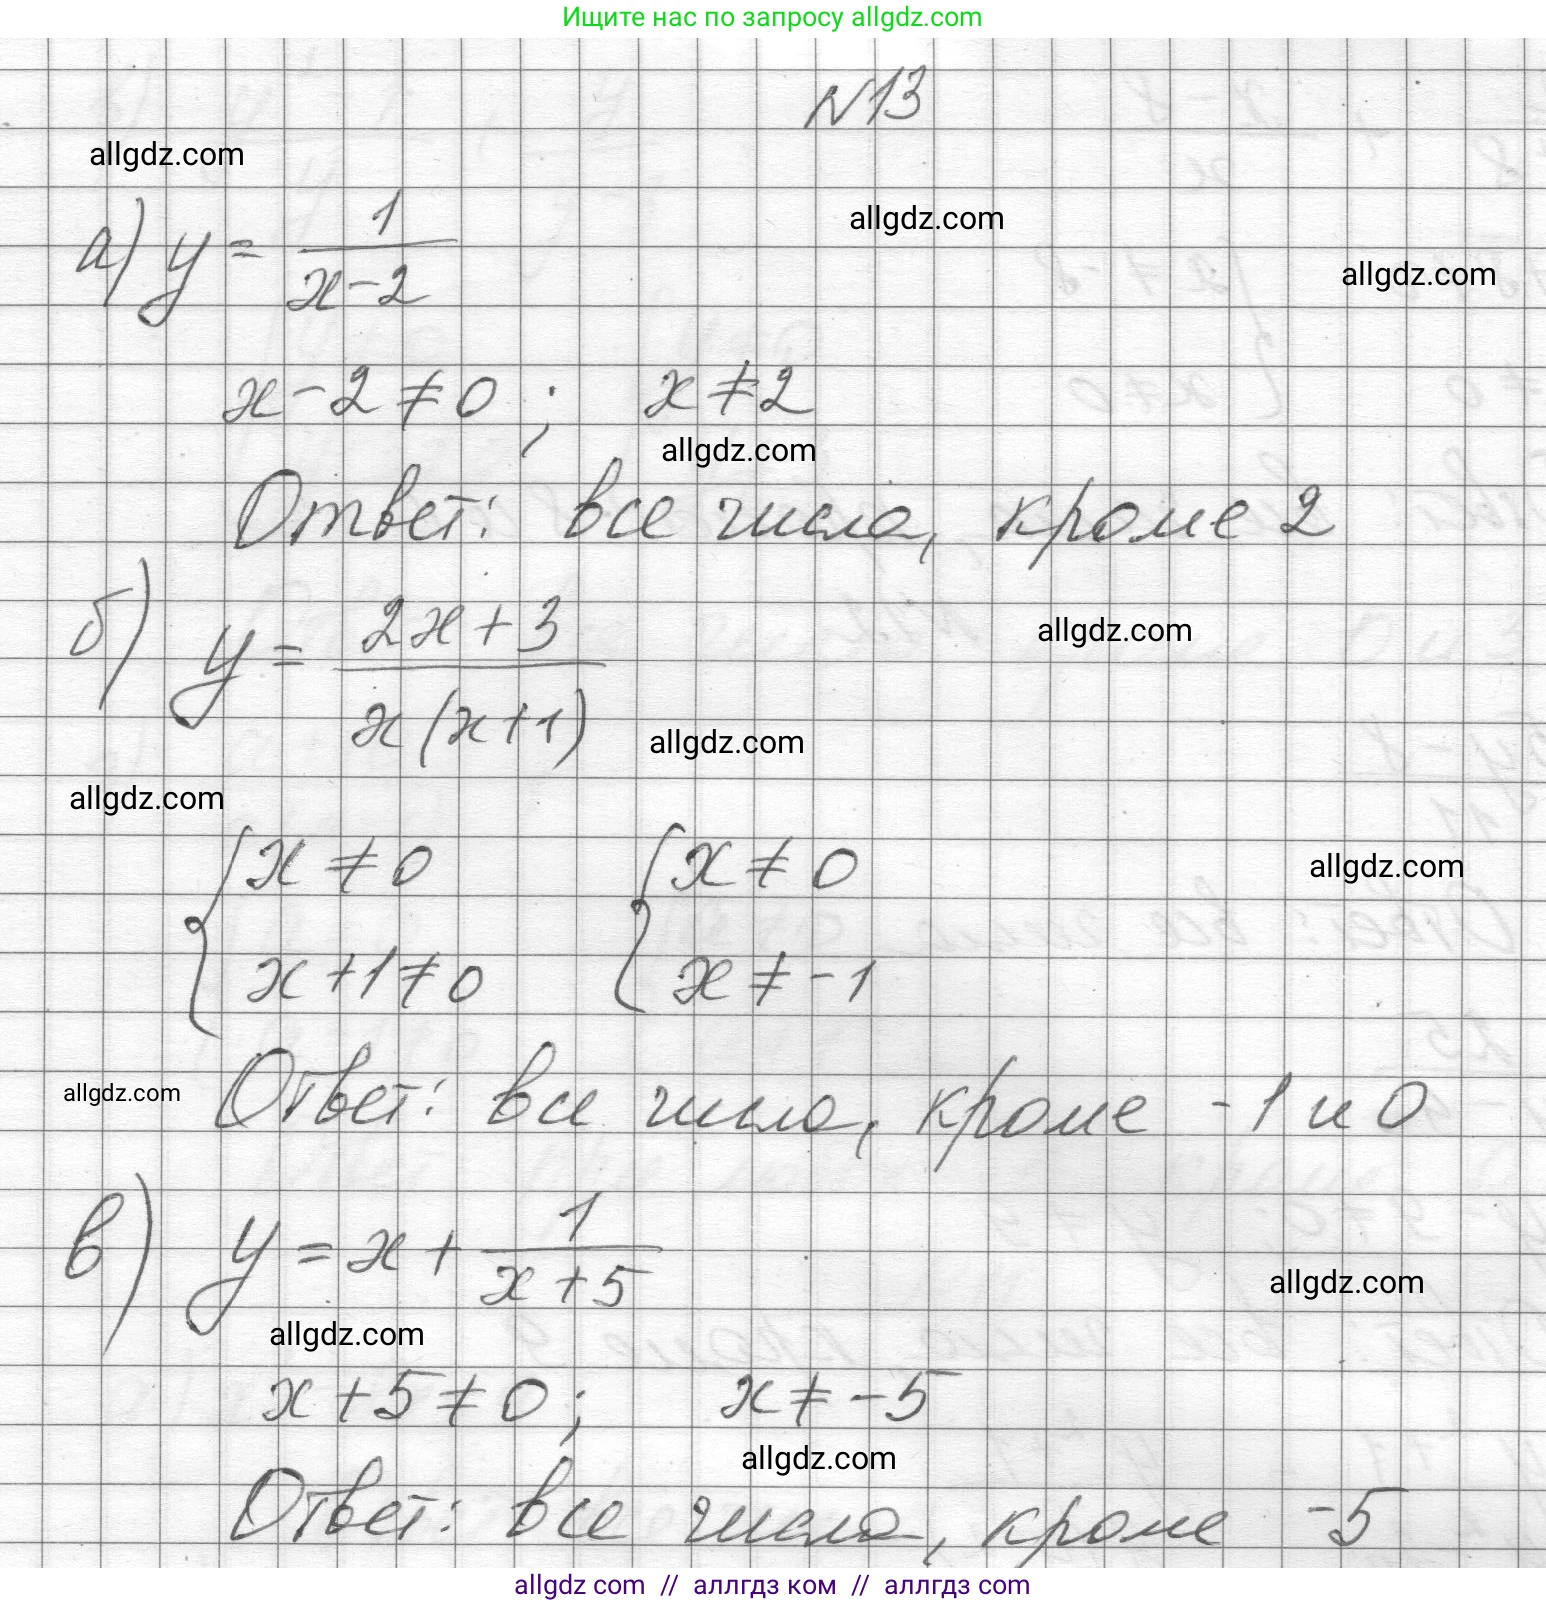 Ищите нас по запросу allgdz.com
N13
allgdz.com
а) y = 1/(x-2)
allgdz.com
allgdz.com
x-2≠0; x≠2
allgdz.com
Ответ: все числа, кроме 2
б) y = (2x+3)/(x(x+1))
allgdz.com
allgdz.com
allgdz.com
{x≠0 {x≠0
allgdz.com
x+1≠0 x≠-1
allgdz.com
Ответ: все числа, кроме -1 и 0
в) y = x + 1/(x+5)
allgdz.com
allgdz.com
x+5≠0; x≠-5
allgdz.com
Ответ: все числа, кроме -5
allgdz com // аллгдз ком // аллгдз com